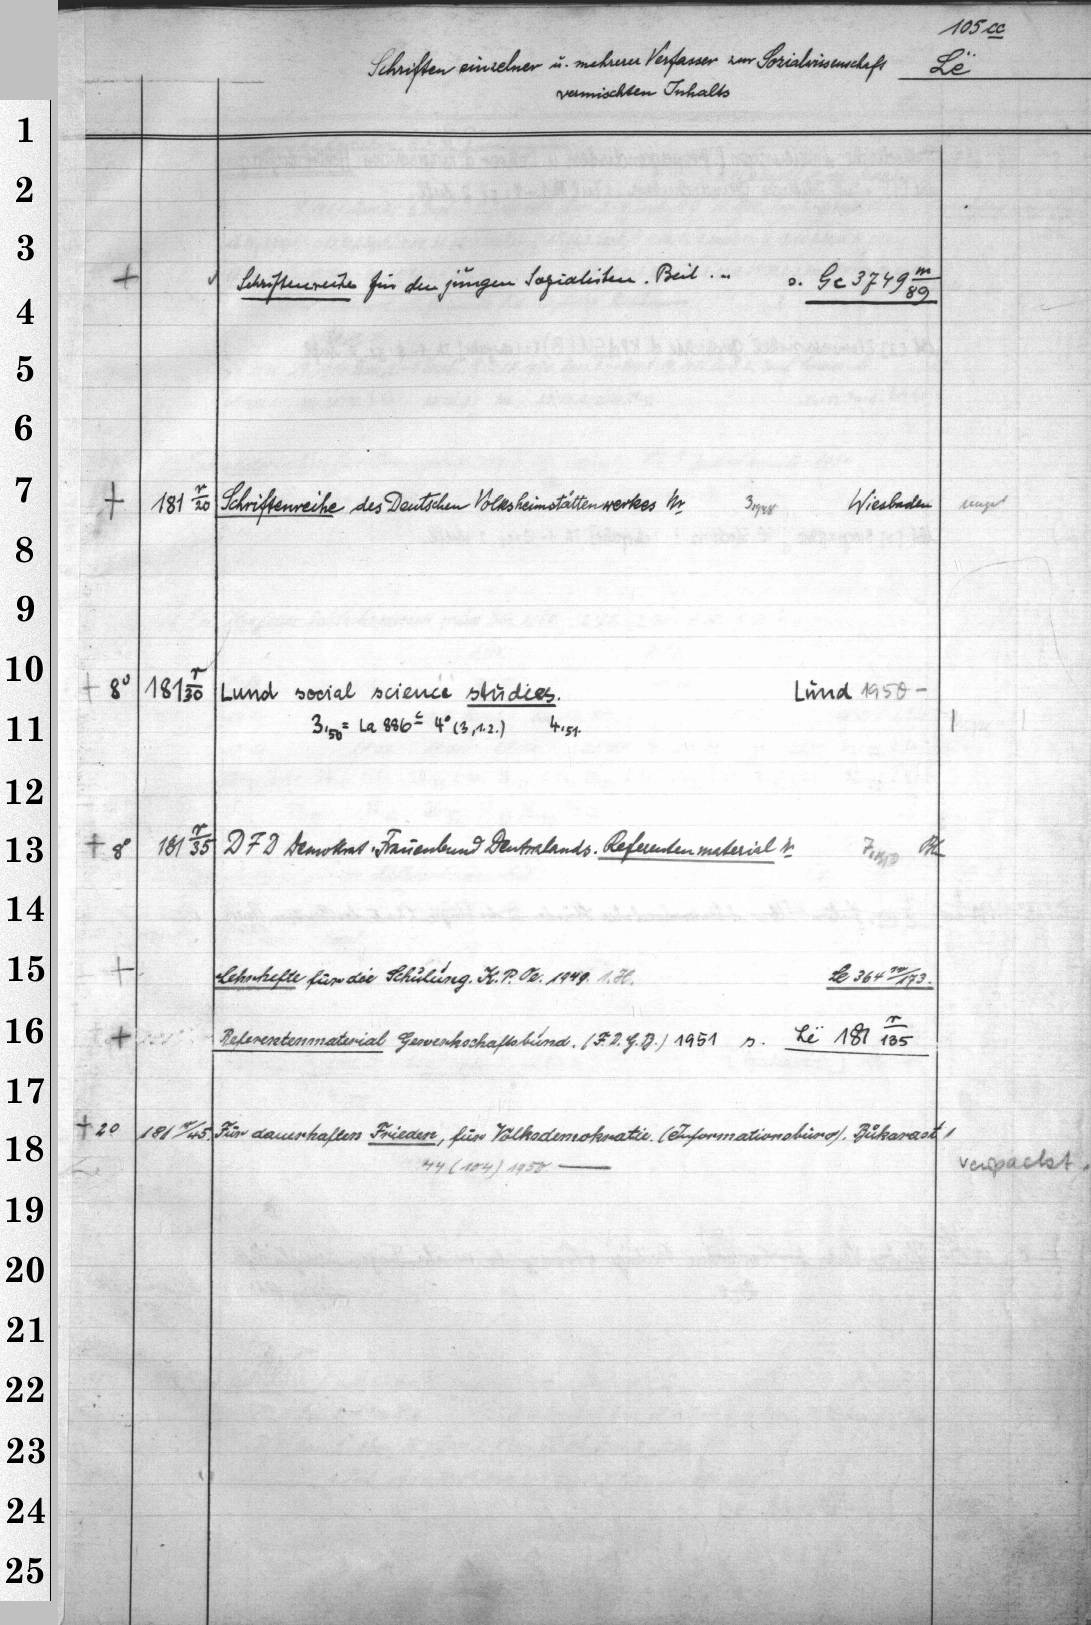 105 cc
Schriften einzelner u. mehrerer Verfasser zur Sozialwissenschaft Lë
vermischten Inhalts
1
2
3
+ Schriftenreihe für den jungen Sozialisten. Beil. .. s. Gc 3749 m/89
4
5
6
7
+ 181 r/20 Schriftenreihe des Deutschen Volksheimstättenwerkes Nr 3,1948 Wiesbaden
8
9
10
+ 8° 181 r/30 Lund social science studies. Lund 1950 –
11
3,50 = La 886 c 4° (3,1.2.) 4,51.
12
13
+ 8° 181 r/35 DFD Demokrat. Frauenbund Deutschlands. Referentenmaterial Nr 7,1950
14
15
+ Lehrhefte für die Schulung. K.P.Oe. 1949. 1.H. Le 364 m/173.
16
+ Referentenmaterial Gewerkschaftsbund. (F.D.G.B.) 1951 s. Lë 181 r/135
17
18
+ 20 181 r/45 Für dauerhaften Frieden, für Volksdemokratie. (Informationsbüro). Bukarest
44 (104) 1950 — verpackt.
19
20
21
22
23
24
25